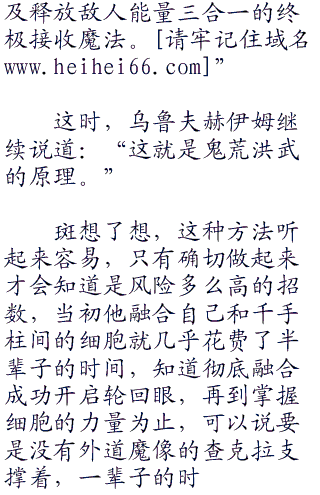 及释放敌人能量三合一的终
极接收魔法。[请牢记住域名
www.heihei66.com]”
这时，乌鲁夫赫伊姆继
续说道：“这就是鬼荒洪武
的原理。”
斑想了想，这种方法听
起来容易，只有确切做起来
才会知道是风险多么高的招
数，当初他融合自己和千手
柱间的细胞就几乎花费了半
辈子的时间，知道彻底融合
成功开启轮回眼，再到掌握
细胞的力量为止，可以说要
是没有外道魔像的查克拉支
撑着，一辈子的时